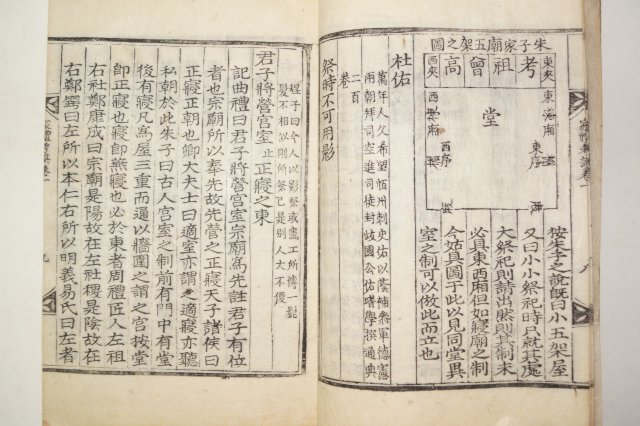 朱子家廟五架之圖
考
祖
曾
高
東夾
西夾
堂
東序
西序
按朱子之說旣曰小五架屋
又曰小小祭祀時只就其處
大祭祀則請出然則其制未
必具東西廂但如寢廟之制
今姑具圖于此以見同堂異
室之制可以倣此而立也
杜佑
萬年人父希望恒州刺史佑以蔭補參軍德憲
兩朝拜司空進司徒封岐國公佑嗜學撰通典
二百
卷
祭時不可用影
程子曰今人以影祭或畫工所傳一髭
髮不相似則所祭已是別人大不便
君子將營宮室止正寢之東
記曲禮曰君子將營宮室宗廟爲先註君子有位
者也宗廟所以奉先故先營之正寢天子諸侯曰
正寢正朝也卿大夫士曰適室亦謂之適寢亦聽
私朝於此朱子曰古人宮室之制前有門中有堂
後有寢凡爲屋三重而通以牆圍之謂之宮按堂
卽正寢也寢卽燕寢也必於東者周禮匠人左祖
右社鄭康成曰宗廟是陽故在左社稷是陰故在
右鄭鍔曰左所以本仁右所以明義易氏曰左者